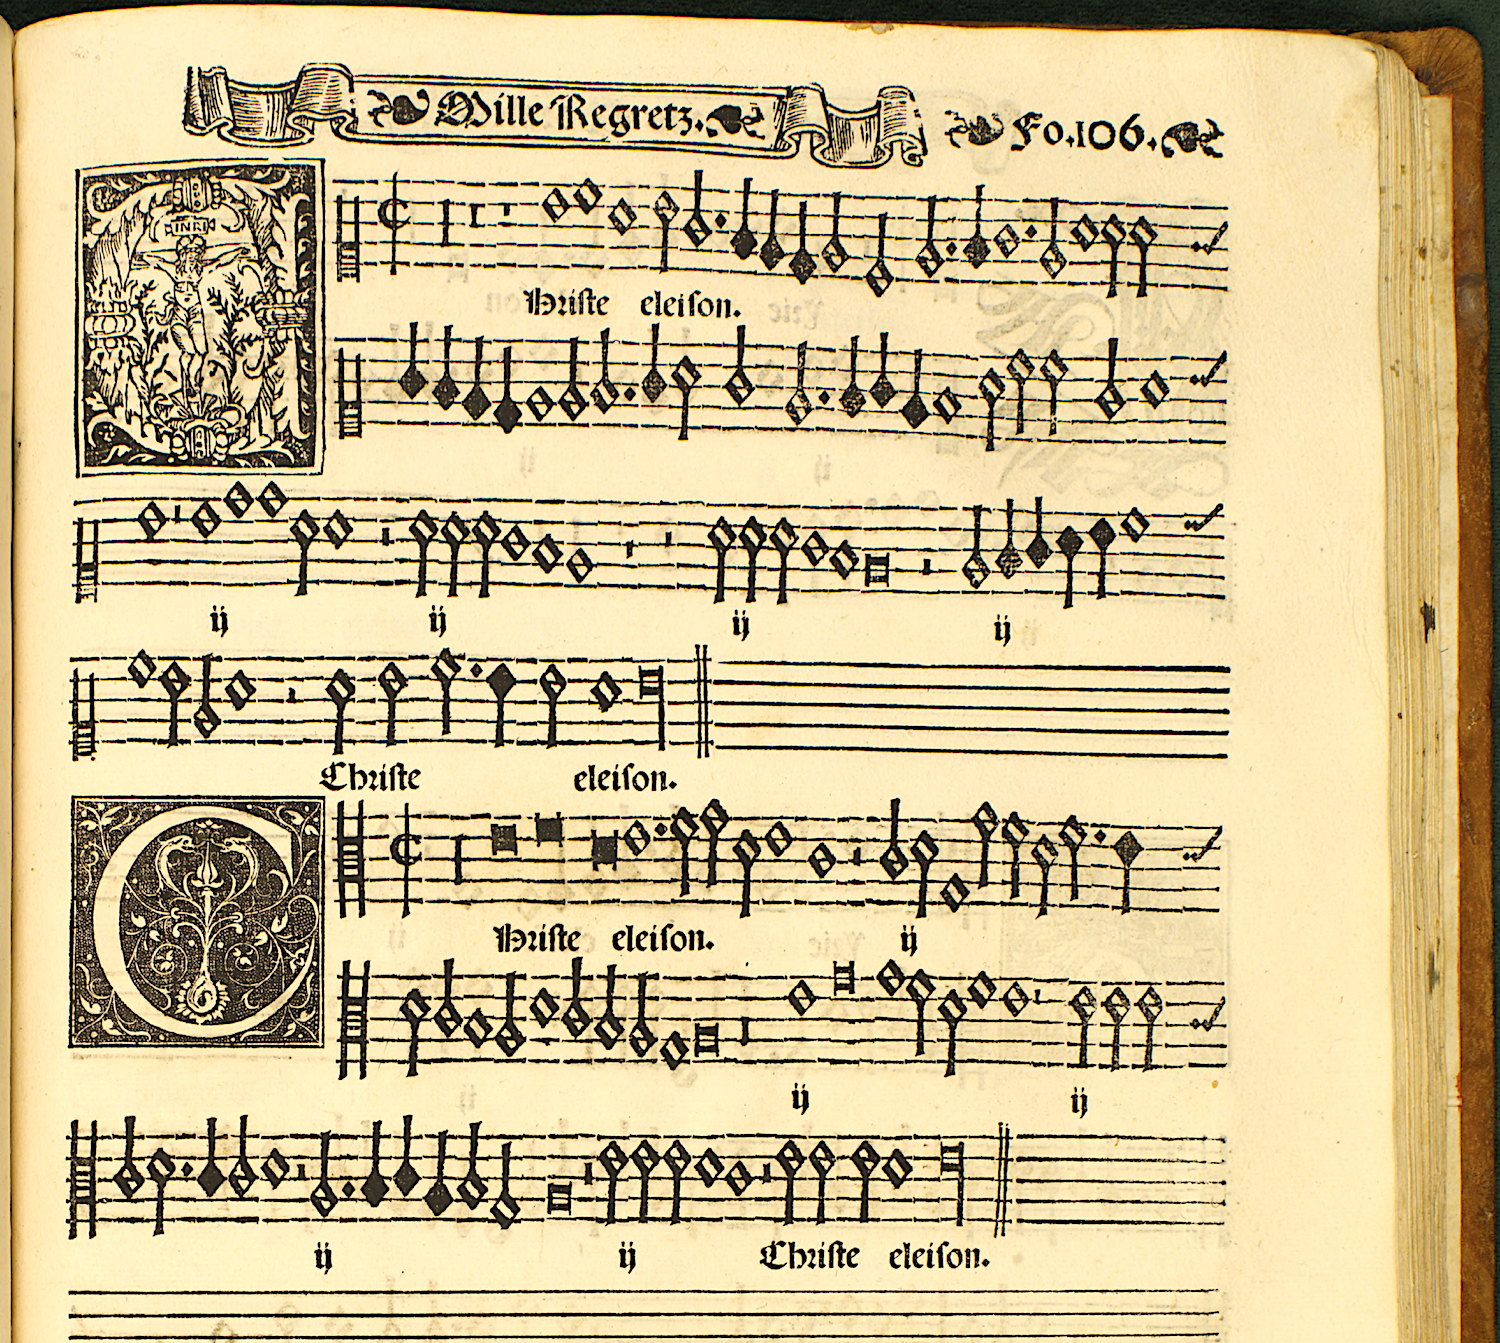 Mille Regretz. Fo.106.
INRI
Hriste eleiſon.
ij ij ij ij
Chriſte eleiſon.
C
Hriſte eleiſon. ij
ij ij
ij ij Chriſte eleiſon.